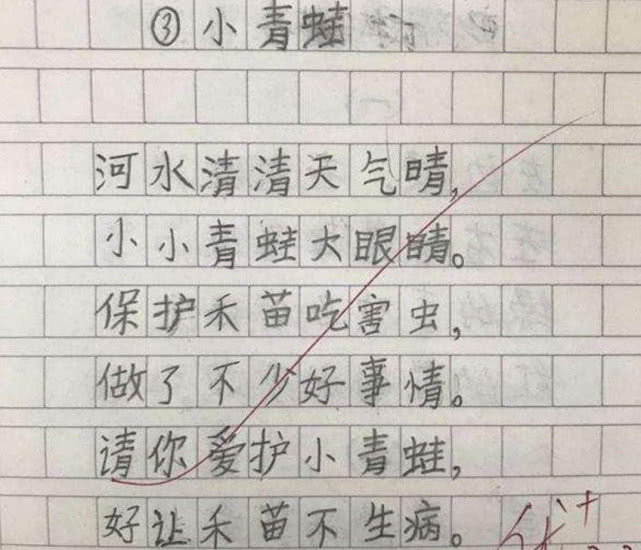 ③小青蛙
河水清清天气晴,
小小青蛙大眼睛。
保护禾苗吃害虫,
做了不少好事情。
请你爱护小青蛙,
好让禾苗不生病。
优+